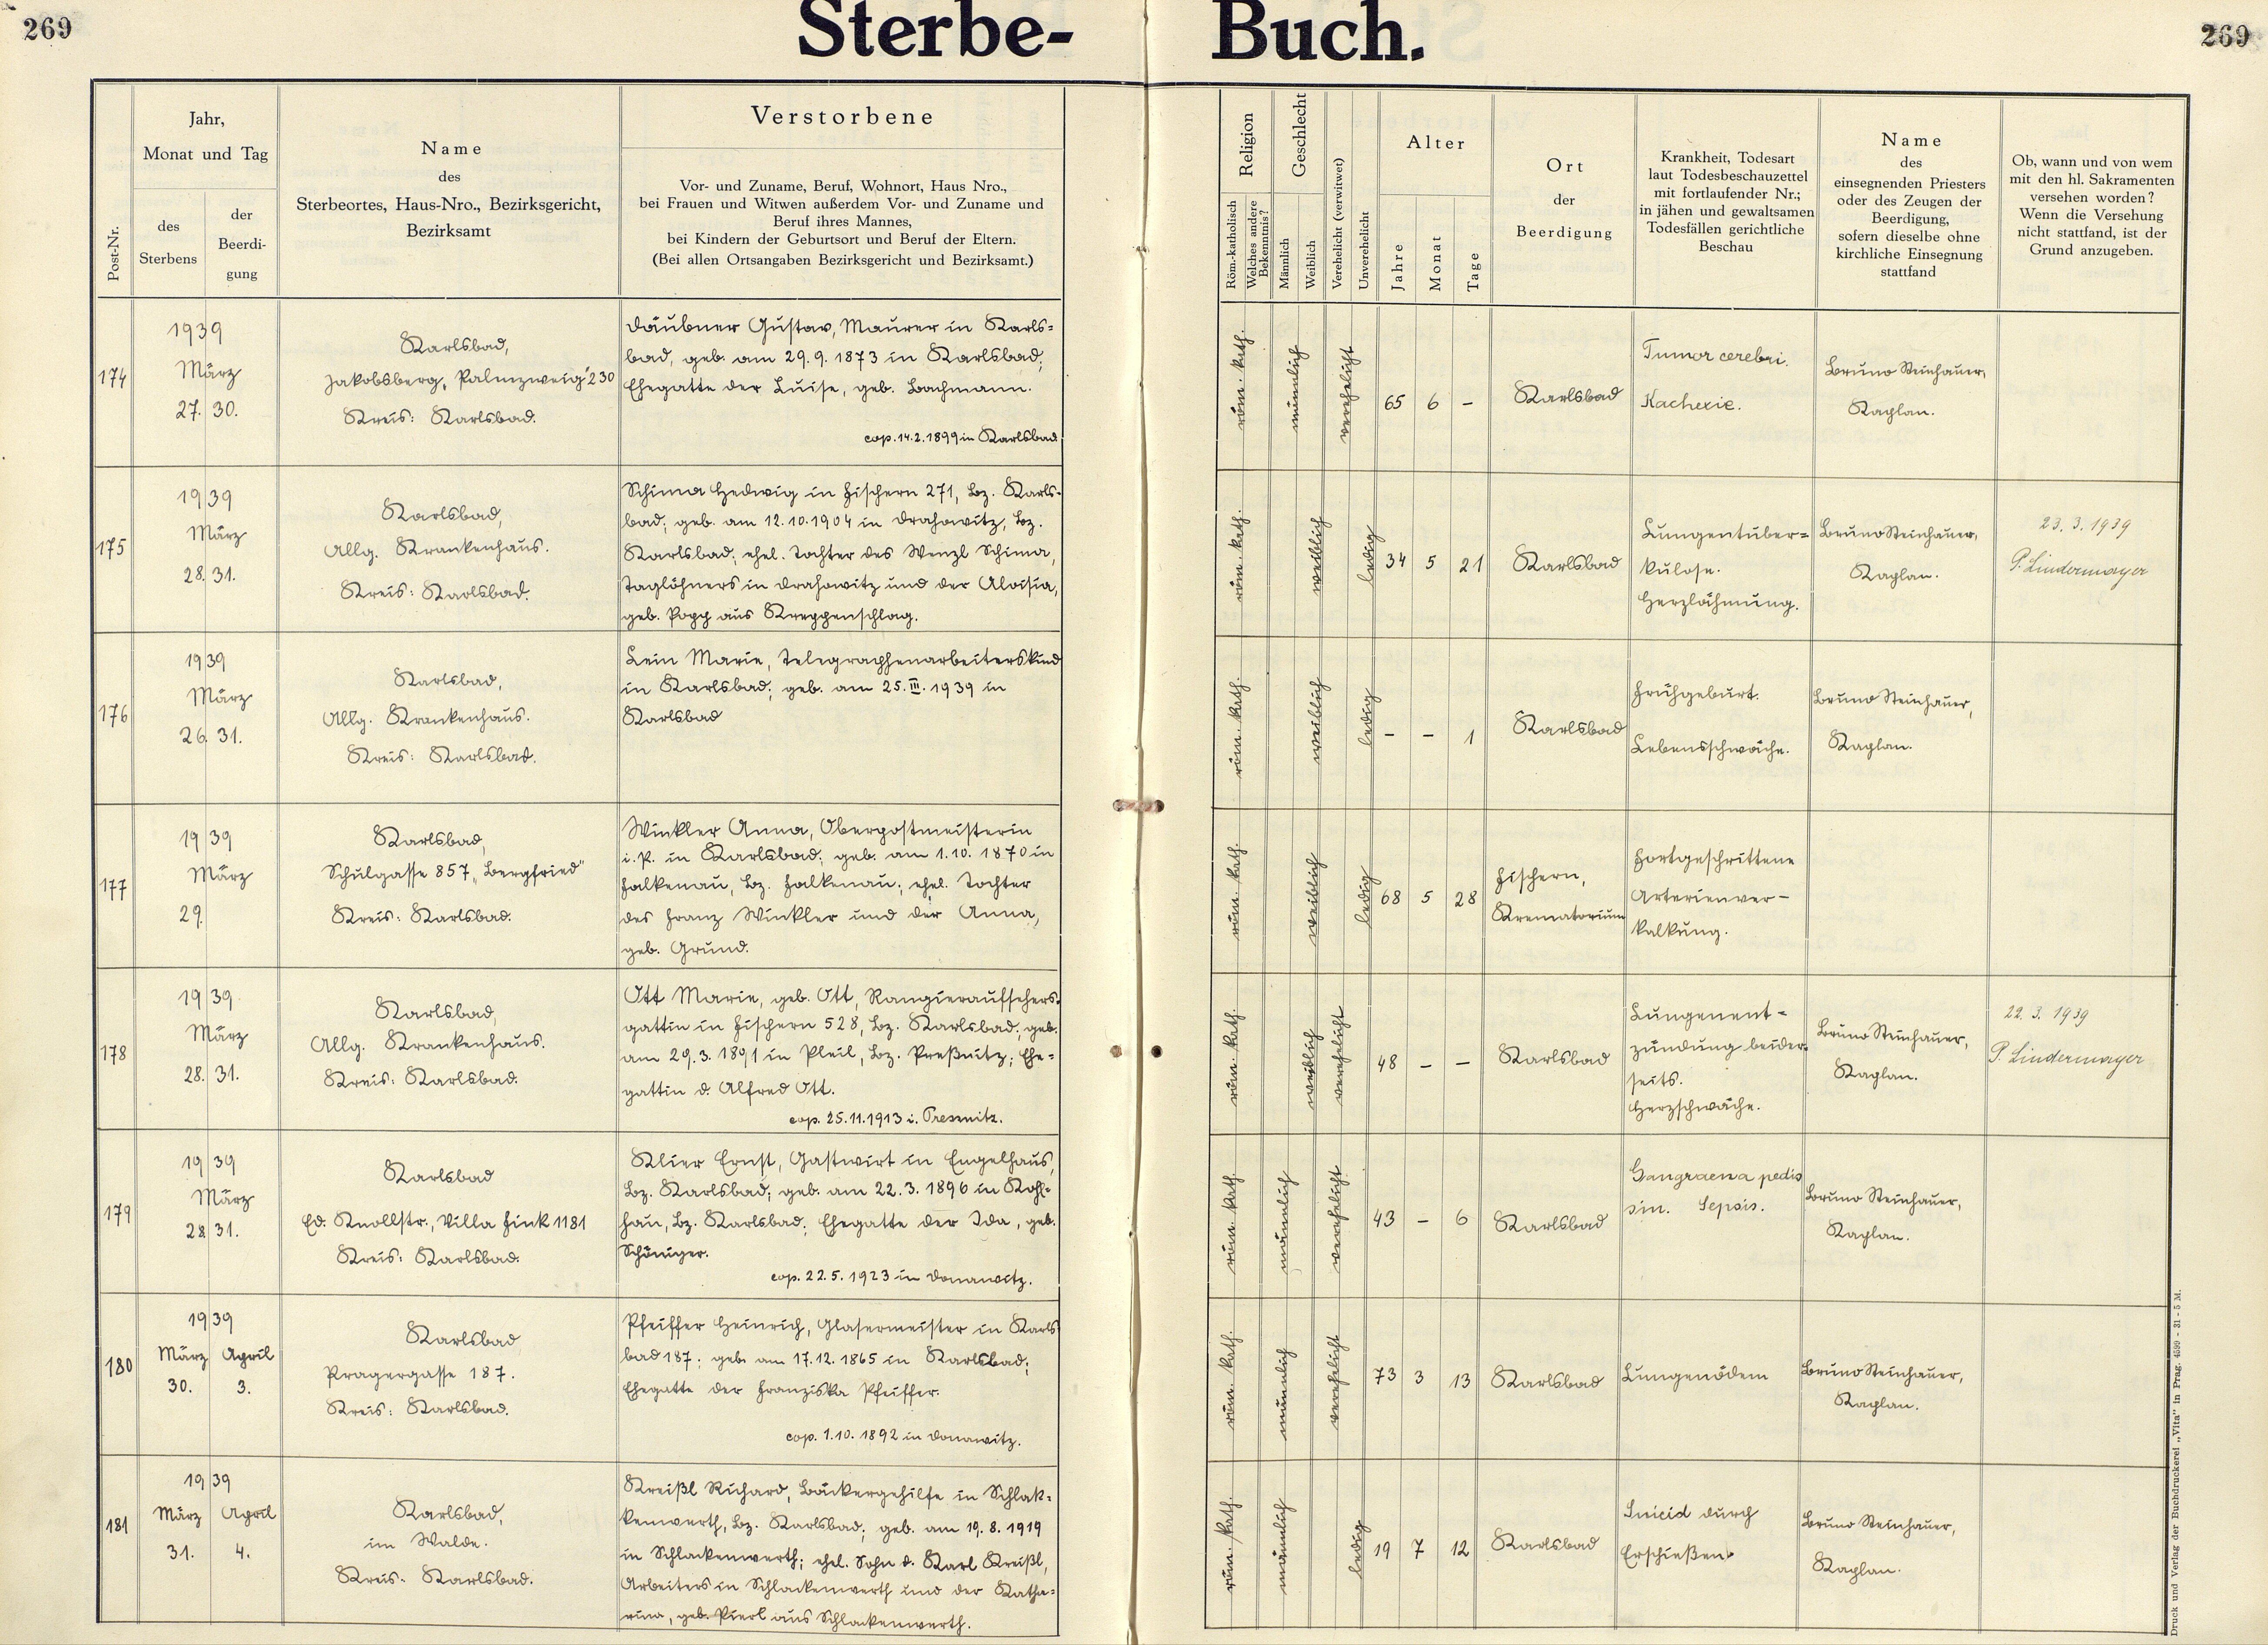 269
Sterbe-
Buch.
269
Post-Nr.
Jahr,
Monat und Tag
des
Sterbens
der
Beerdi-
gung
Name
des
Sterbeortes, Haus-Nro., Bezirksgericht,
Bezirksamt
Verstorbene
Vor- und Zuname, Beruf, Wohnort, Haus Nro.,
bei Frauen und Witwen außerdem Vor- und Zuname und
Beruf ihres Mannes,
bei Kindern der Geburtsort und Beruf der Eltern.
(Bei allen Ortsangaben Bezirksgericht und Bezirksamt.)
Religion
Röm.-katholisch
Welches andere
Bekenntnis?
Geschlecht
Männlich
Weiblich
Verehelicht (verwitwet)
Unverehelicht
Alter
Jahre
Monat
Tage
Ort
der
Beerdigung
Krankheit, Todesart
laut Todesbeschauzettel
mit fortlaufender Nr.;
in jähen und gewaltsamen
Todesfällen gerichtliche
Beschau
Name
des
einsegnenden Priesters
oder des Zeugen der
Beerdigung,
sofern dieselbe ohne
kirchliche Einsegnung
stattfand
Ob, wann und von wem
mit den hl. Sakramenten
versehen worden?
Wenn die Versehung
nicht stattfand, ist der
Grund anzugeben.
174
1939
März
27. 30.
Karlsbad,
Jakobsberg, "Palmzweig" 230
Kreis: Karlsbad.
Däubner Gustav, Maurer in Karls=
bad, geb. am 29. 9. 1873 in Karlsbad;
Ehegatte der Luise, geb. Bachmann.
cop. 14.2.1899 in Karlsbad
röm. kath.
männlich
verehelicht
65 6 -
Karlsbad
Tumor cerebri.
Kachexie.
Bruno Steinhauer,
Kaplan.
175
1939
März
28. 31.
Karlsbad,
Allg. Krankenhaus.
Kreis: Karlsbad.
Schima Hedwig in Fischern 271, Bz. Karls-
bad; geb. am 12.10.1904 in Drahowitz, Bz.
Karlsbad; ehel. Tochter des Wenzl Schima,
Taglöhners in Drahowitz und der Aloisia,
geb. Popp aus Kreppenschlag.
röm. kath.
weiblich
ledig
34 5 21
Karlsbad
Lungentuber=
kulose.
Herzlähmung.
Bruno Steinhauer,
Kaplan.
23. 3. 1939
P. Lindermayer
176
1939
März
26. 31.
Karlsbad,
Allg. Krankenhaus.
Kreis: Karlsbad.
Lein Marie, Telegraphenarbeiterskind
in Karlsbad; geb. am 25. III. 1939 in
Karlsbad
röm. kath.
weiblich
ledig
- - 1
Karlsbad
Frühgeburt.
Lebensschwäche.
Bruno Steinhauer,
Kaplan.
177
1939
März
29.
Karlsbad,
Schulgasse 857 „Bergfried"
Kreis: Karlsbad.
Winkler Anna, Oberpostmeisterin
i. P. in Karlsbad; geb. am 1.10. 1870 in
Falkenau, Bz. Falkenau; ehel. Tochter
des Franz Winkler und der Anna,
geb. Grund.
röm. kath.
weiblich
ledig
68 5 28
Fischern,
Krematorium
Fortgeschrittene
Arterienver-
kalkung.
178
1939
März
28. 31.
Karlsbad,
Allg. Krankenhaus.
Kreis: Karlsbad.
Ott Marie, geb. Ott, Rangieraufsehers-
gattin in Fischern 528, Bz. Karlsbad; geb.
am 29. 3. 1891 in Pleil, Bz. Preßnitz; Ehe=
gattin d. Alfred Ott.
cop. 25.11.1913 i. Pressnitz.
röm. kath.
weiblich
verehelicht
48 - -
Karlsbad
Lungenent-
zündung beider-
seits.
Herzschwäche.
Bruno Steinhauer,
Kaplan.
22. 3. 1939
P. Lindermayer
179
1939
März
28. 31.
Karlsbad
Ed. Knollstr., Villa Fink 1181
Kreis: Karlsbad.
Klier Ernst, Gastwirt in Engelhaus,
Bz. Karlsbad; geb. am 22. 3. 1896 in Kohl-
hau, Bz. Karlsbad; Ehegatte der Ida, geb.
Schöniger.
cop. 22. 5. 1923 in Donawitz.
röm. kath.
männlich
verehelicht
43 - 6
Karlsbad
Gangraena pedis
sin. Sepsis.
Bruno Steinhauer,
Kaplan.
180
1939
März April
30. 3.
Karlsbad
Pragergasse 187.
Kreis: Karlsbad.
Pfeiffer Heinrich, Glasermeister in Karls
bad 187; geb. am 17.12. 1865 in Karlsbad;
Ehegatte der Franziska Pfeiffer.
cop. 1.10. 1892 in Donawitz.
röm. kath.
männlich
verehelicht
73 3 13
Karlsbad
Lungenödem
Bruno Steinhauer,
Kaplan.
181
1939
März April
31. 4.
Karlsbad,
im Walde.
Kreis: Karlsbad.
Kreißl Richard, Bäckergehilfe in Schlak=
kenwerth, Bz. Karlsbad; geb. am 19. 8. 1919
in Schlackenwerth; ehel. Sohn d. Karl Kreißl,
Arbeiters in Schlackenwerth und der Katha=
rina, geb. Pierl aus Schlackenwerth.
röm. kath.
männlich
ledig
19 7 12
Karlsbad
Suicid durch
Erschießen.
Bruno Steinhauer,
Kaplan.
Druck und Verlag der Buchdruckerei „Vita" in Prag. 4599 - 31 - 5 M.